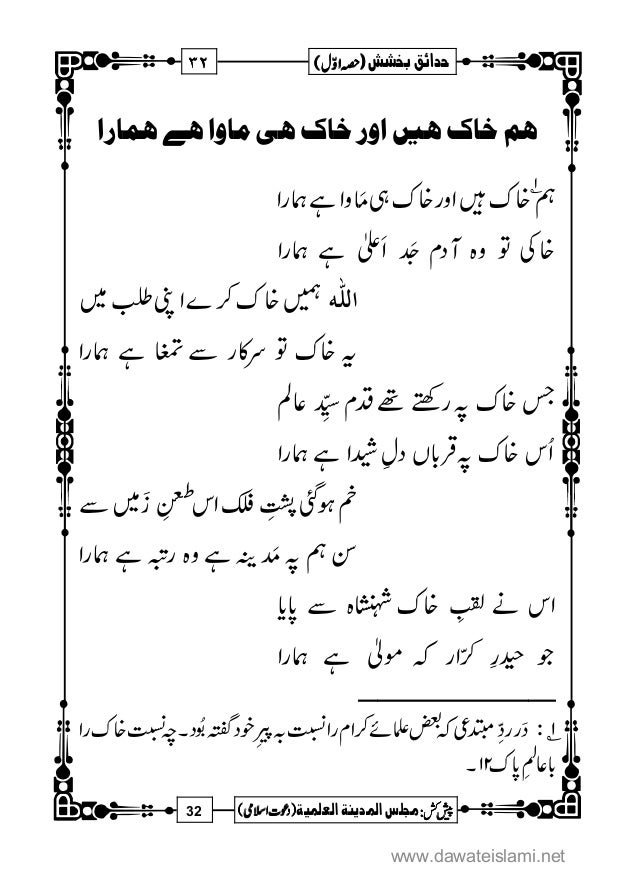 حدائقِ بخشش (حصہ اوّل)
۳۲
ھم خاک ھیں اور خاک ھی ماوا ھے ھمارا
ہم ۱؎ خاک ہیں اور خاک ہی مَاوا ہے ہمارا
خاکی تو وہ آدم جَد اَعلیٰ ہے ہمارا
اللّٰہ ہمیں خاک کرے اپنی طلب میں
یہ خاک تو سرکار سے تمغا ہے ہمارا
جس خاک پہ رکھتے تھے قدم سیِّدِ عالم
اُس خاک پہ قرباں دلِ شیدا ہے ہمارا
خم ہوگئی پشتِ فلک اس طعنِ زَمیں سے
سن ہم پہ مَدینہ ہے وہ رتبہ ہے ہمارا
اس نے لقبِ خاک شہنشاہ سے پایا
جو حیدرِ کرّار کہ مولیٰ ہے ہمارا
۱؎ : دَر ردِّ مبتدعی کہ بعض علمائے کرام را نسبت بہ پیرِ خود گفتہ بُود۔ چہ نسبت خاک را
با عالمِ پاک ۱۲۔
پیش کش: مجلس المدینۃ العلمیۃ (دعوت اسلامی)
32
www.dawateislami.net